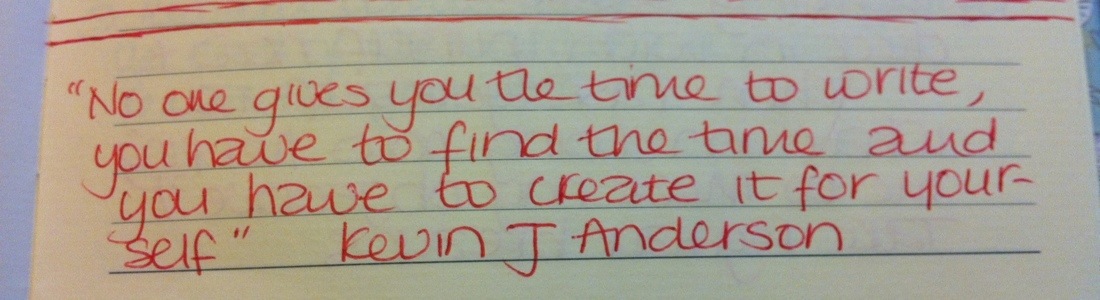 "No one gives you the time to write,
you have to find the time and
you have to create it for your-
self" Kevin J Anderson